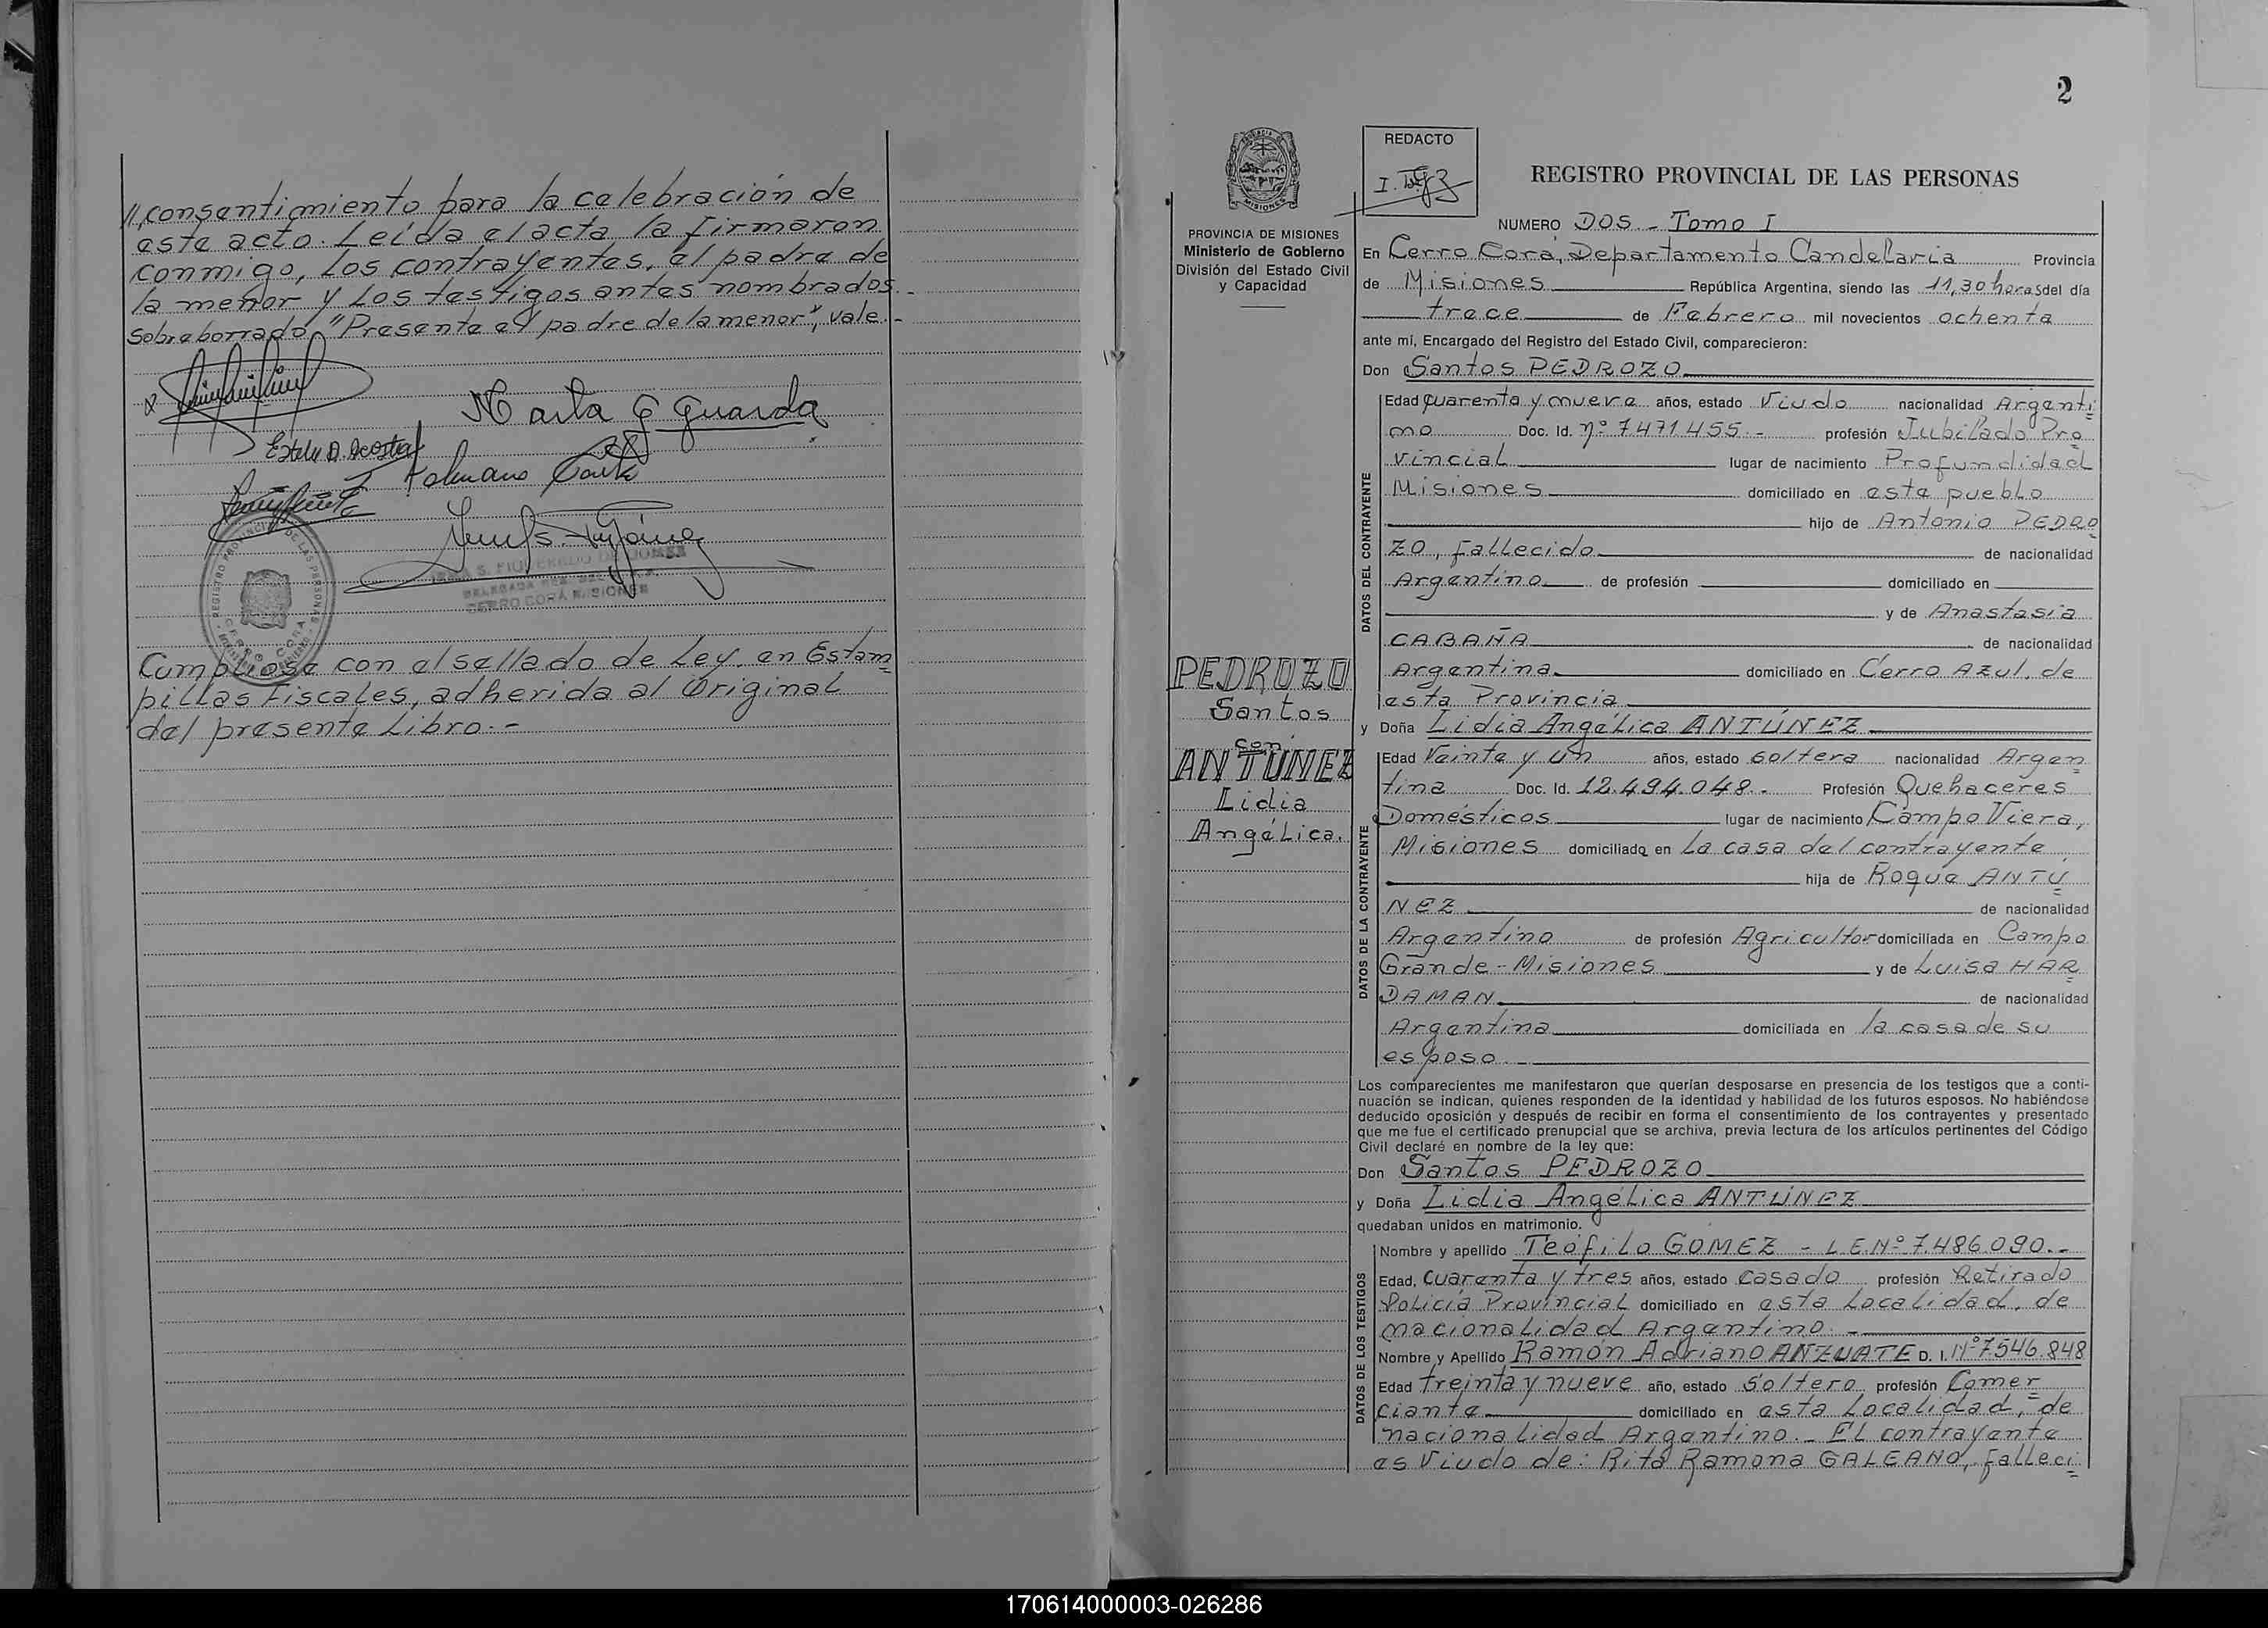 // consentimiento para la celebración de
este acto. Leída el acta la firmaron
conmigo, los contrayentes, el padre de
la menor y los testigos antes nombrados.-
Sobreborrado "Presente el padre de la menor", vale.-
Marta G Guarda
Estela D. Acosta
CERRO CORÁ MISIONES
Cumpliose con el sellado de Ley, en Estam
pillas Fiscales, adherida al Original
del presente Libro.-
2
REDACTO
REGISTRO PROVINCIAL DE LAS PERSONAS
PROVINCIA DE MISIONES
Ministerio de Gobierno
División del Estado Civil
y Capacidad
PEDROZO
Santos
con
ANTUNEZ
Lidia
Angélica.
NUMERO DOS - Tomo I
En Cerro Corá, Departamento Candelaria Provincia
de Misiones República Argentina, siendo las 11,30 horas del día
trece de Febrero mil novecientos ochenta
ante mí, Encargado del Registro del Estado Civil, comparecieron:
Don Santos PEDROZO
DATOS DEL CONTRAYENTE
Edad cuarenta y nueve años, estado Viudo nacionalidad Argenti
no Doc. Id. Nº 7.471.455.- profesión Jubilado Pro
vincial lugar de nacimiento Profundidad
Misiones domiciliado en este pueblo
hijo de Antonio PEDRO
ZO, fallecido de nacionalidad
Argentino de profesión domiciliado en
y de Anastasia
CABAÑA de nacionalidad
Argentina domiciliado en Cerro Azul, de
esta Provincia
y Doña Lidia Angélica ANTÚNEZ
DATOS DE LA CONTRAYENTE
Edad Veinte y un años, estado soltera nacionalidad Argen
tina Doc. Id. 12.494.048.- Profesión Quehaceres
Domésticos lugar de nacimiento Campo Viera,
Misiones domiciliada en la casa del contrayente
hija de Roque ANTU
NEZ de nacionalidad
Argentino de profesión Agricultor domiciliada en Campo
Grande - Misiones y de Luisa HAR
DAMAN de nacionalidad
Argentina domiciliada en la casa de su
esposo.-
Los comparecientes me manifestaron que querían desposarse en presencia de los testigos que a conti-
nuación se indican, quienes responden de la identidad y habilidad de los futuros esposos. No habiéndose
deducido oposición y después de recibir en forma el consentimiento de los contrayentes y presentado
que me fue el certificado prenupcial que se archiva, previa lectura de los artículos pertinentes del Código
Civil declaré en nombre de la ley que:
Don Santos PEDROZO
y Doña Lidia Angélica ANTÚNEZ
quedaban unidos en matrimonio.
DATOS DE LOS TESTIGOS
Nombre y apellido Teófilo GOMEZ - L.E.Nº 7.486.090.-
Edad, cuarenta y tres años, estado casado profesión Retirado
Policía Provincial domiciliado en esta Localidad, de
nacionalidad Argentino.-
Nombre y Apellido Ramón Adriano ANZUATE D. I. Nº 7546.848
Edad treinta y nueve año, estado soltero profesión Comer
ciante domiciliado en esta Localidad, de
nacionalidad Argentino.- El contrayente
es Viudo de: Rita Ramona GALEANO, falleci
170614000003-026286